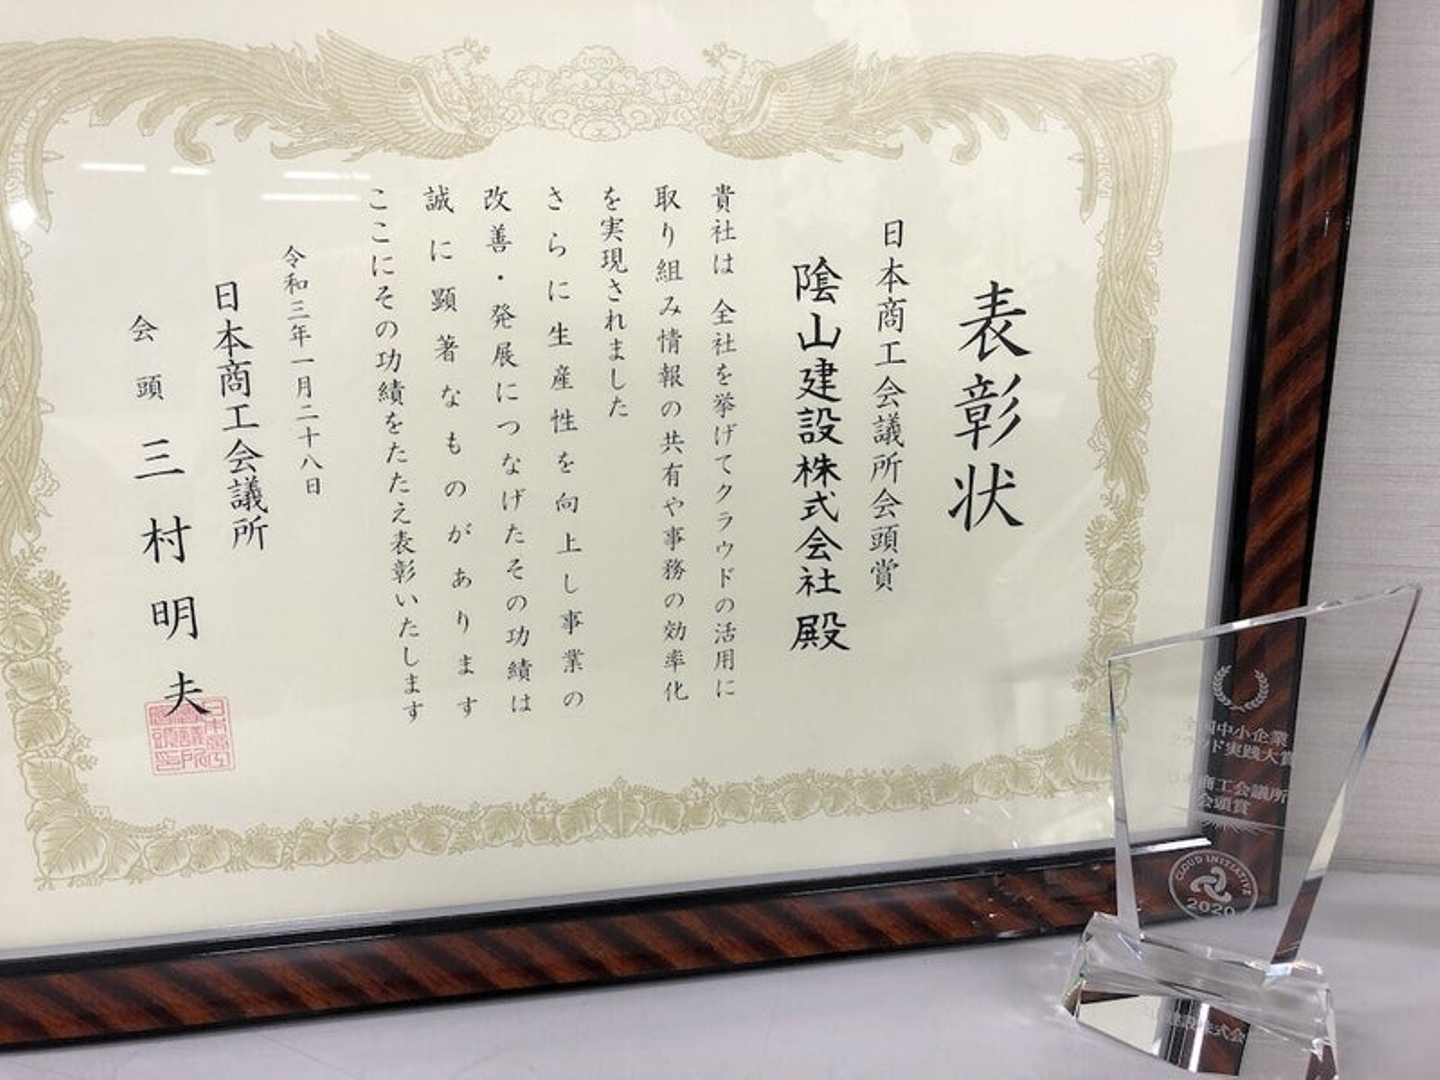 表彰状
日本商工会議所会頭賞
陰山建設株式会社 殿
貴社は 全社を挙げてクラウドの活用に
取り組み情報の共有や事務の効率化
を実現されました
さらに生産性を向上し事業の
改善・発展につなげたその功績は
誠に顕著なものがあります
ここにその功績をたたえ表彰いたします
令和三年一月二十八日
日本商工会議所
会頭 三村明夫
中小企業
実践大賞
商工会議所
会頭賞
CLOUD INITIATIVE
2020
建設株式会